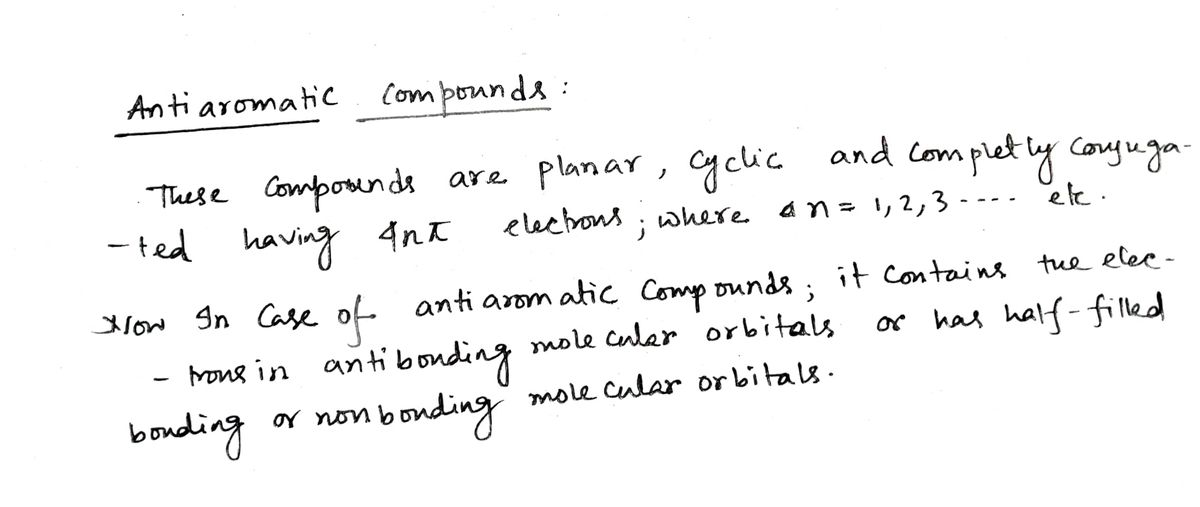 Antiaromatic Compounds :
These Compounds are planar, Cyclic and Completly Conjuga-
-ted having 4nπ electrons ; where n = 1, 2, 3 ---- etc.
Now In Case of antiaromatic Compounds ; it Contains the elec-
- trons in antibonding molecular orbitals or has half-filled
bonding or nonbonding molecular orbitals.